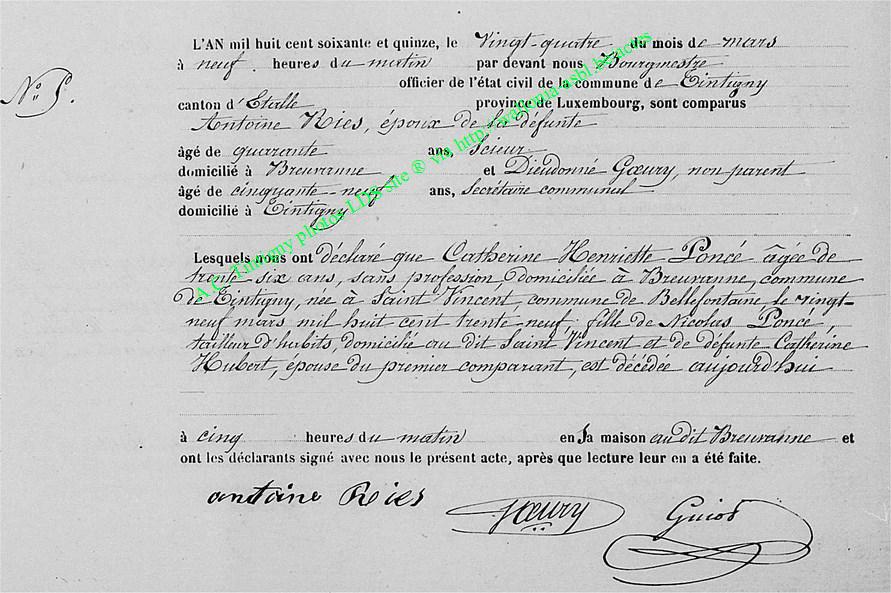 L'AN mil huit cent soixante et quinze, le Vingt-quatre du mois de mars
à neuf heures du matin par devant nous Bourgmestre
officier de l'état civil de la commune de Tintigny
N° 5.
canton d'Etalle province de Luxembourg, sont comparus
Antoine Ries, époux de la défunte
âgé de quarante ans, Scieur
domicilié à Breuvanne et Dieudonné Gœury, non parent
âgé de cinquante-neuf ans, Secrétaire communal
domicilié à Tintigny
Lesquels nous ont déclaré que Catherine Henriette Poncé âgée de
trente six ans, sans profession, domiciliée à Breuvanne, commune
de Tintigny, née à Saint Vincent, commune de Bellefontaine, le vingt-
neuf mars mil huit cent trente neuf, fille de Nicolas Poncé,
tailleur d'habits, domicilié au dit Saint Vincent et de défunte Catherine
Hubert, épouse du premier comparant, est décédée aujourd'hui
à cinq heures du matin en sa maison au dit Breuvanne et
ont les déclarants signé avec nous le présent acte, après que lecture leur en a été faite.
antoine Ries Gœury Guiot
A.C. Tintigny photos LDS site ® via http://wallonia-asbl.be/actes